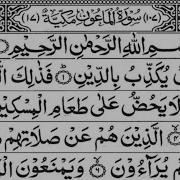 (١٠٧) سُوْرَةُ الْمَاعُوْنِ مَكِّيَّةٌ (١٧)
سْمِ اللّٰهِ الرَّحْمٰنِ الرَّحِيْمِ
يُكَذِّبُ بِالدِّيْنِ ۝١ فَذٰلِكَ
لَا يَحُضُّ عَلٰى طَعَامِ الْمِسْكِيْنِ
الَّذِيْنَ هُمْ عَنْ صَلَاتِهِمْ
مْ يُرَآءُوْنَ ۝٦ وَيَمْنَعُوْنَ